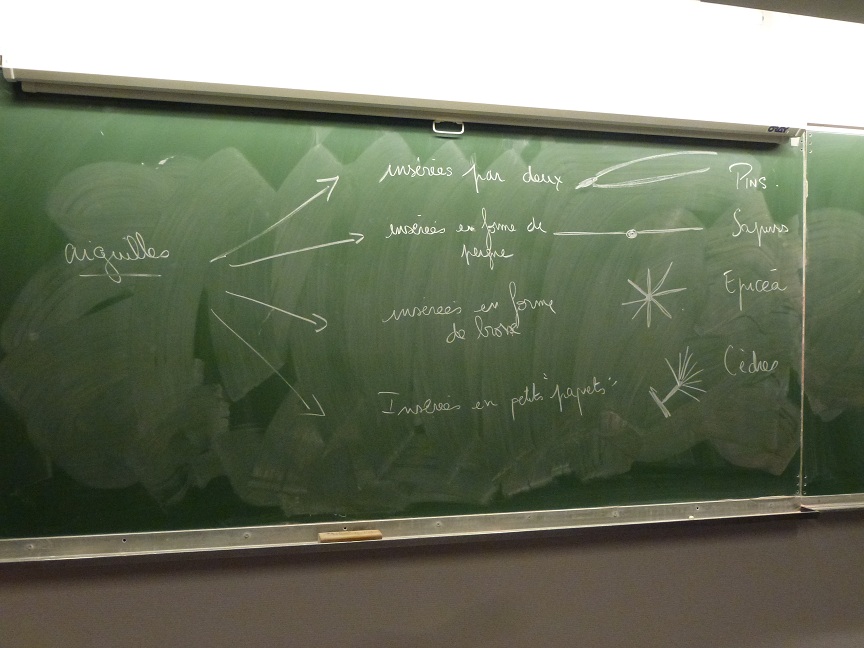 aiguilles
insérées par deux
PINS.
insérées en forme de
peigne
Sapins
insérées en forme
de brosse
Epicéa
Insérées en petits "paquets"
Cèdres
ORAY